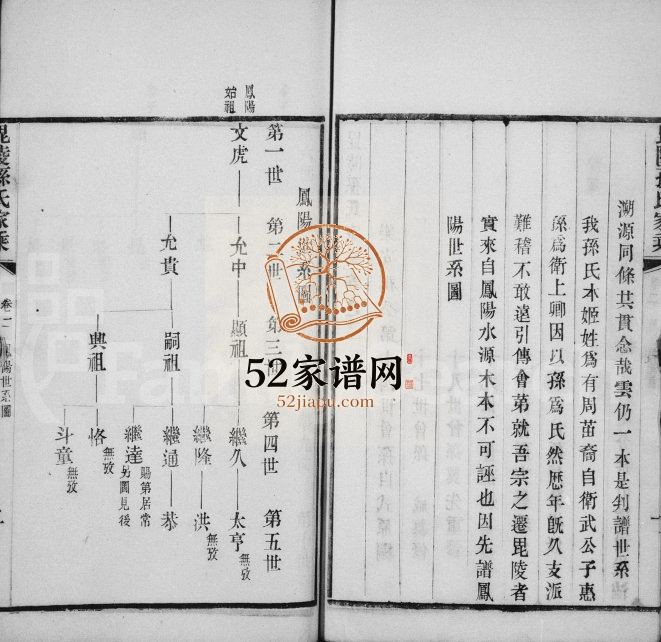 溯源同條共貫念哉雲仍一本是判譜世系
我孫氏本姬姓為有周苗裔自衛武公子惠
孫為衛上卿因以孫為氏然歷年既久支派
難稽不敢遠引傅會第就吾宗之遷毘陵者
實來自鳳陽水源木本不可誣也因先譜鳳
陽世系圖
鳳陽世系圖
第一世 第二世 第三世 第四世 第五世
鳳陽
始祖
文虎 允中 顯祖 繼久 太亨 無攷
繼隆 洪 無攷
允貴 嗣祖 繼通 恭
繼達 賜第居常
另圖見後
興祖 恪 無攷
斗童 無攷
毘陵孫氏家乘
卷二 鳳陽世系圖
52家谱网
52jiapu.com